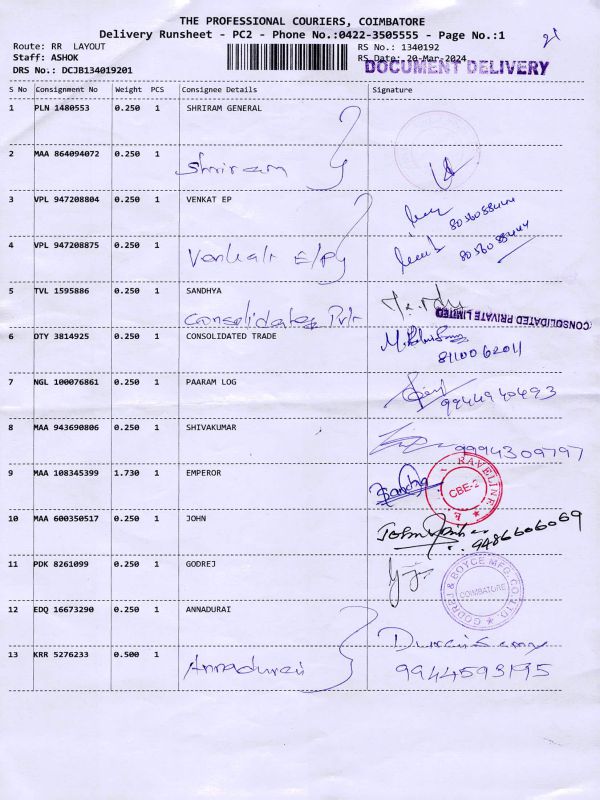 THE PROFESSIONAL COURIERS, COIMBATORE
Delivery Runsheet - PC2 - Phone No.:0422-3505555 - Page No.:1
Route: RR LAYOUT
RS No.: 1340192
Staff: ASHOK
RS Date: 20-Mar-2024
DRS No.: DCJB134019201
DOCUMENT DELIVERY
S No Consignment No Weight PCS Consignee Details Signature
1 PLN 1480553 0.250 1 SHRIRAM GENERAL
2 MAA 864094072 0.250 1
Shriram
3 VPL 947208804 0.250 1 VENKAT EP
8056088444
4 VPL 947208875 0.250 1
Venkat E/P
8056088444
5 TVL 1595886 0.250 1 SANDHYA
Consolidated Pvt
CONSOLIDATED PRIVATE LIMITED
6 DTY 3814925 0.250 1 CONSOLIDATED TRADE
8110062011
7 NGL 100076861 0.250 1 PAARAM LOG
9944940493
8 MAA 943690806 0.250 1 SHIVAKUMAR
9994309797
9 MAA 108345399 1.730 1 EMPEROR
RAVELINE
CBE-2
10 MAA 600350517 0.250 1 JOHN
John
9486606069
11 PDK 8261099 0.250 1 GODREJ
GODREJ & BOYCE MFG. CO. LTD
COIMBATORE
12 EDQ 16673290 0.250 1 ANNADURAI
Duraisamy
13 KRR 5276233 0.500 1
Annadurai
9944593195